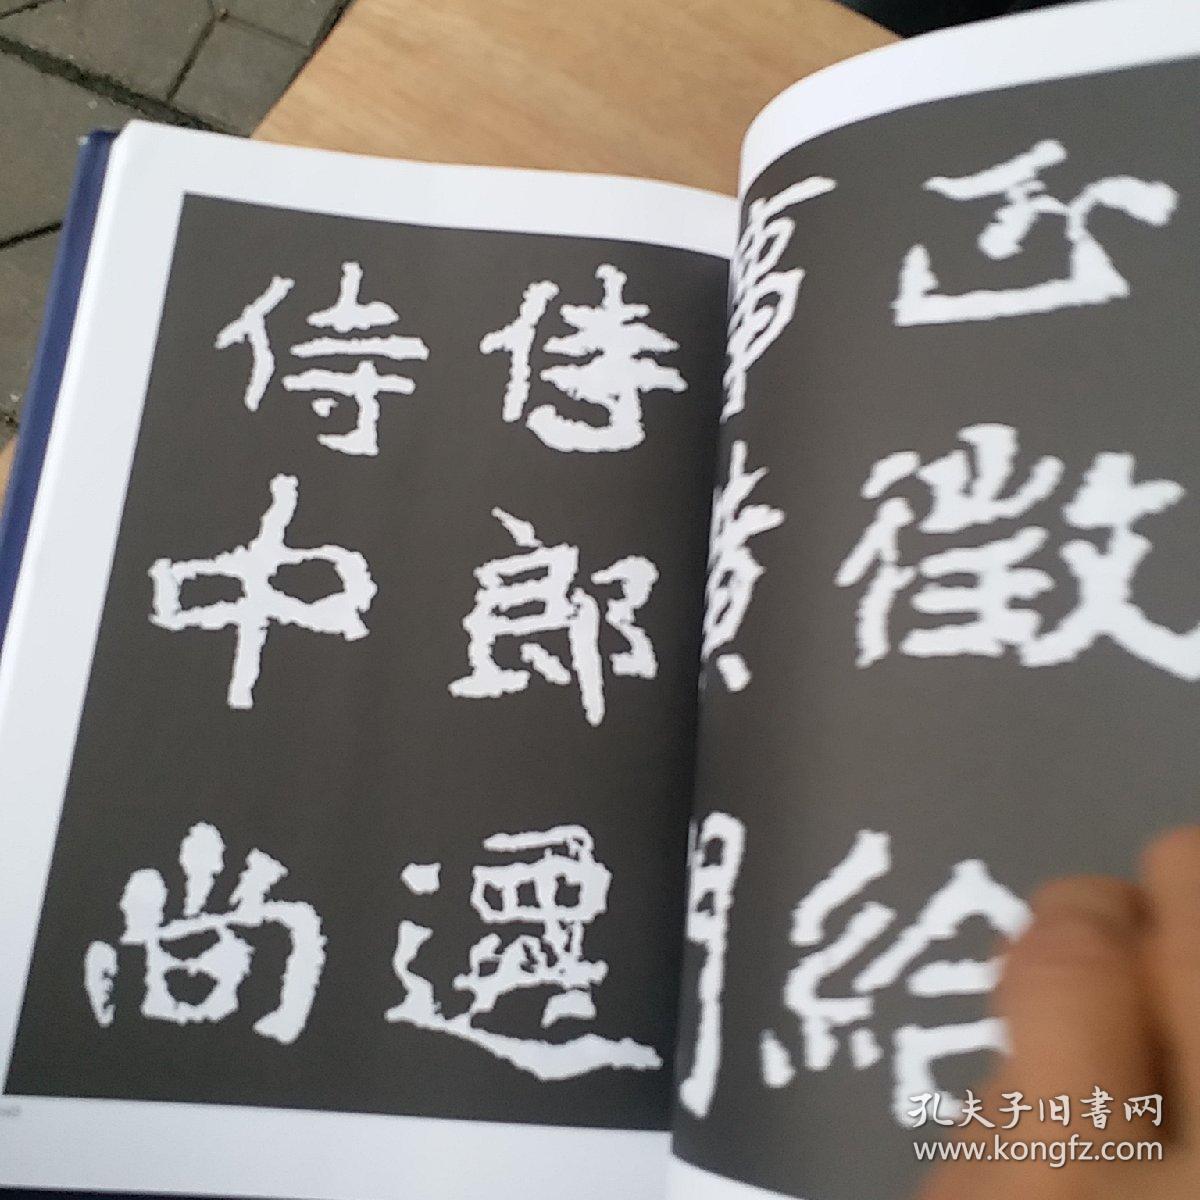 徵給
事黃門
侍郎遷
侍中尚
孔夫子旧書网
www.kongfz.com